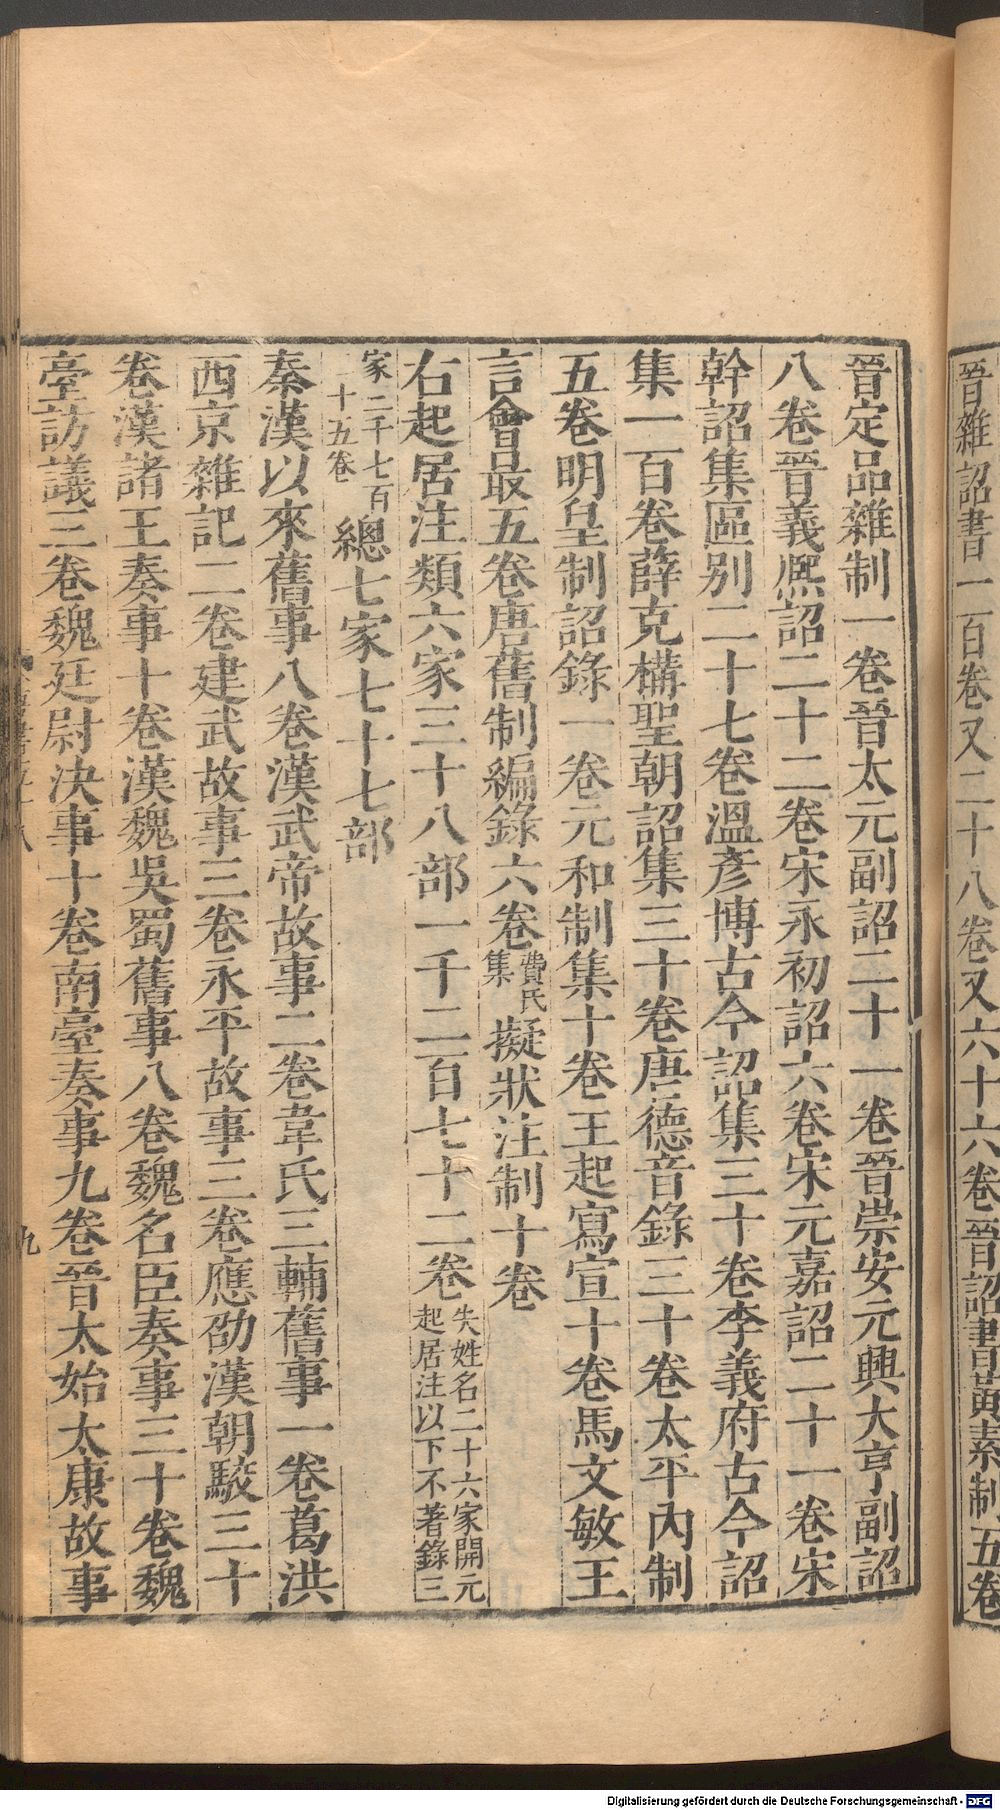 晉雜詔書一百卷又二十八卷又六十六卷晉詔書黃素制五卷
晉定品雜制一卷晉太元副詔二十一卷晉崇安元興大亨副詔
八卷晉義熈詔二十二卷宋永初詔六卷宋元嘉詔二十一卷宋
幹詔集區別二十七卷溫彥博古今詔集三十卷李義府古今詔
集一百卷薛克構聖朝詔集三十卷唐德音錄三十卷太平內制
五卷明皇制詔錄一卷元和制集十卷王起寫宣十卷馬文敏王
言會最五卷唐舊制編錄六卷費氏集擬狀注制十卷
右起居注類六家三十八部一千二百七十二卷失姓名二十六家開元起居注以下不著錄三
家二千七百一十五卷總七家七十七部
秦漢以來舊事八卷漢武帝故事二卷韋氏三輔舊事一卷葛洪
西京雜記二卷建武故事三卷永平故事三卷應劭漢朝駮三十
卷漢諸王奏事十卷漢魏吳蜀舊事八卷魏名臣奏事三十卷魏
臺訪議三卷魏廷尉決事十卷南臺奏事九卷晉太始太康故事
九
Digitalisierung gefördert durch die Deutsche Forschungsgemeinschaft - DFG